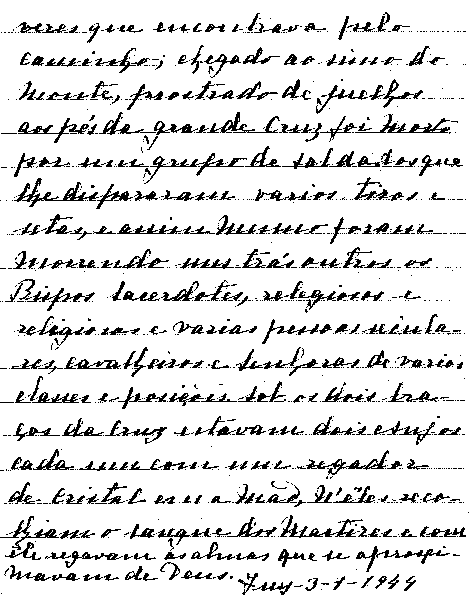 veres que encontrava pelo
caminho; chegado ao simo do
monte, prostrado de juelhos
aos pés da grande Cruz foi morto
por um grupo de soldados que
lhe dispararam varios tiros e
setas, e assim mesmo foram
morrendo uns trás outros os
Bispos sacerdotes, relegiosos e
religiosas e varias pessoas seicula-
res, cavalheiros e senhoras de varias
classes e posições. Sob os dois bra-
ços da Cruz estavam dois Anjos
cada um com um regador
de cristal em a mão, N'êles reco-
lhiam o sangue dos Martires e com
ele regavam às almas que se aproxi-
mavam de Deus.
Tuy-3-1-1944